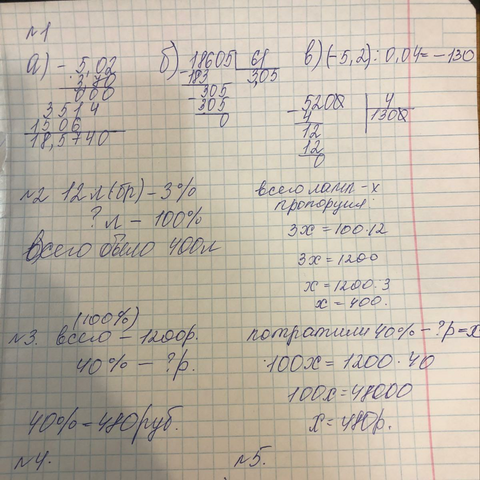 №1
а) - 5,02
3,70
000
3514
1506
18,5740
б) 18605 | 61
- 183 | 305
- 305
305
0
в) (-5,2) : 0,04 = -130
- 5200 | 4
4 | 1300
12
12
0
№2 12 л(бр) - 3%
? л - 100%
Всего было 400л
всего ламп - х
пропорция:
3х = 100·12
3х = 1200
х = 1200:3
х = 400.
(100%)
№3. всего - 1200р.
40% - ?р.
40% = 480 руб.
потратили 40% - ?р = х
100х = 1200·40
100х = 48000
х = 480р.
№4.
№5.